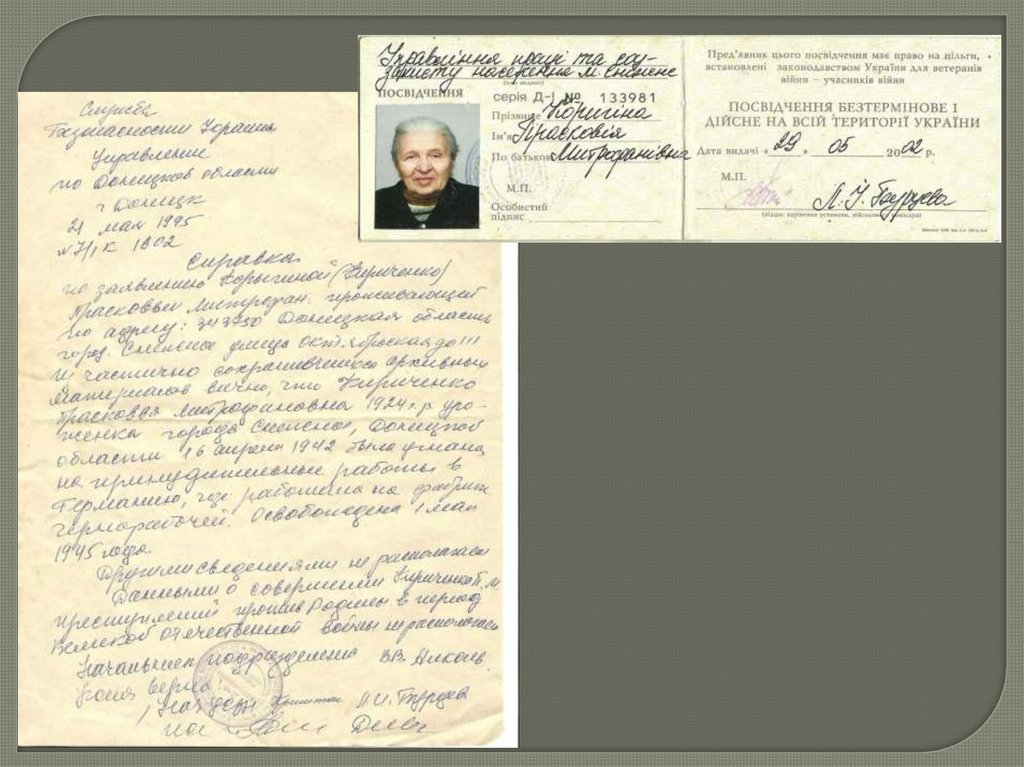 Служба
Безопасности Украины
Управление
по Донецкой области
г Донецк
21 мая 1995
№7/1 К 1802
Справка
по заявлению Корыгиной (Кириченко)
Прасковьи Митрофан. проживающей
по адресу: 343750 Донецкая область
город. Снежное улица Октябрьская
Из частично сохранившихся архивных
материалов видно, что Кириченко
Прасковья Митрофановна 1924 г.р уро-
женка города Снежное, Донецкой
области 16 апреля 1942 была угнана
на принудительные работы в
Германию, где работала на фабрике
чернорабочей. Освобождена 1 мая
1945 года.
Другими сведениями не располагаем
Данными о совершении Кириченко П.М.
преступлений против Родины в период
Великой отечественной войны не располагаем
Начальник подразделения В.В.
Копия верна
Л.И. Гаурцева
Управління праці та соц-
захисту населення м. Сніжне
ПОСВІДЧЕННЯ
серія Д-I № 133981
Прізвище Коригіна
Ім'я Прасковія
По батькові Митрофанівна
М.П.
Особистий
підпис
Пред'явник цього посвідчення має право на пільги,
встановлені законодавством України для ветеранів
війни – учасників війни
ПОСВІДЧЕННЯ БЕЗТЕРМІНОВЕ І
ДІЙСНЕ НА ВСІЙ ТЕРИТОРІЇ УКРАЇНИ
Дата видачі «29» 05 2002 р.
М.П.